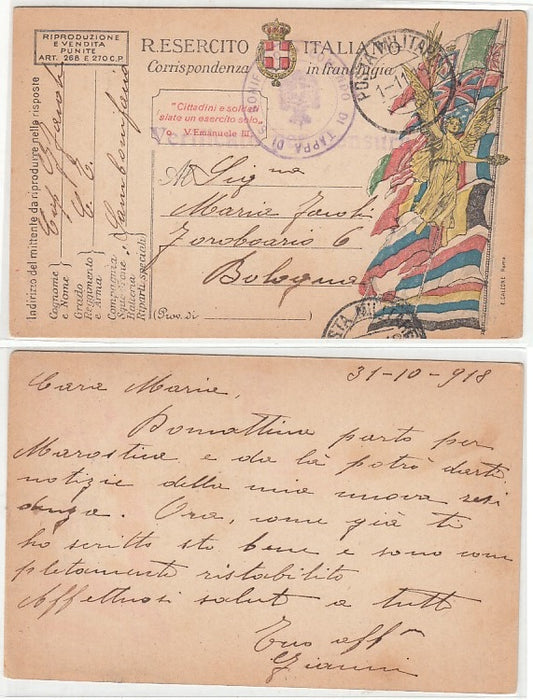 RIPRODUZIONE
E VENDITA
PUNITE
ART. 268 E 270 C.P.
R. ESERCITO ITALIANO
Corrispondenza in franchigia
POSTA MILITARE
"Cittadini e soldati
siate un esercito solo"
V. Emanuele III.
Verificato per censura
DI TAPPA DI
Indirizzo del mittente da riprodurre nelle risposte
Cognome
e Nome
Grado
Reggimento
e Arma
Compagnia
Batteria
Riparti speciali
Sambonifacio
Al Sig.na
Maria
Foroboario 6
Bologna
(Prov. di
POSTA MILITARE
Roma
31-10-918
Cara Maria,
Domattina parto per
Marostica e da là potrò darti
notizie della mia nuova resi
denza. Ora, come già ti
ho scritto sto bene e sono com
pletamente ristabilito
Affettuosi saluti a tutti
Tuo aff.
Gianni